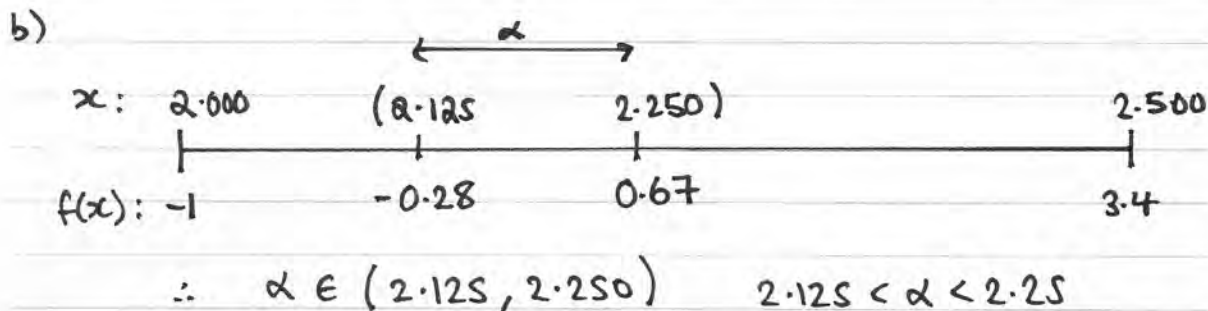 b)
α
x: 2.000 (2.125 2.250) 2.500
f(x): -1 -0.28 0.67 3.4
∴ α ∈ (2.125, 2.250) 2.125 < α < 2.25